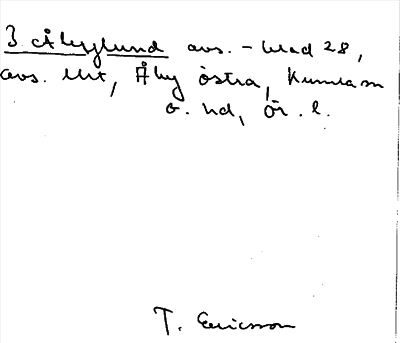 3. Åbylund avs. - blad 28,
avs. Utt, Åby östra, Kumla sn
o. hd, Ör. l.
T. Ericsson